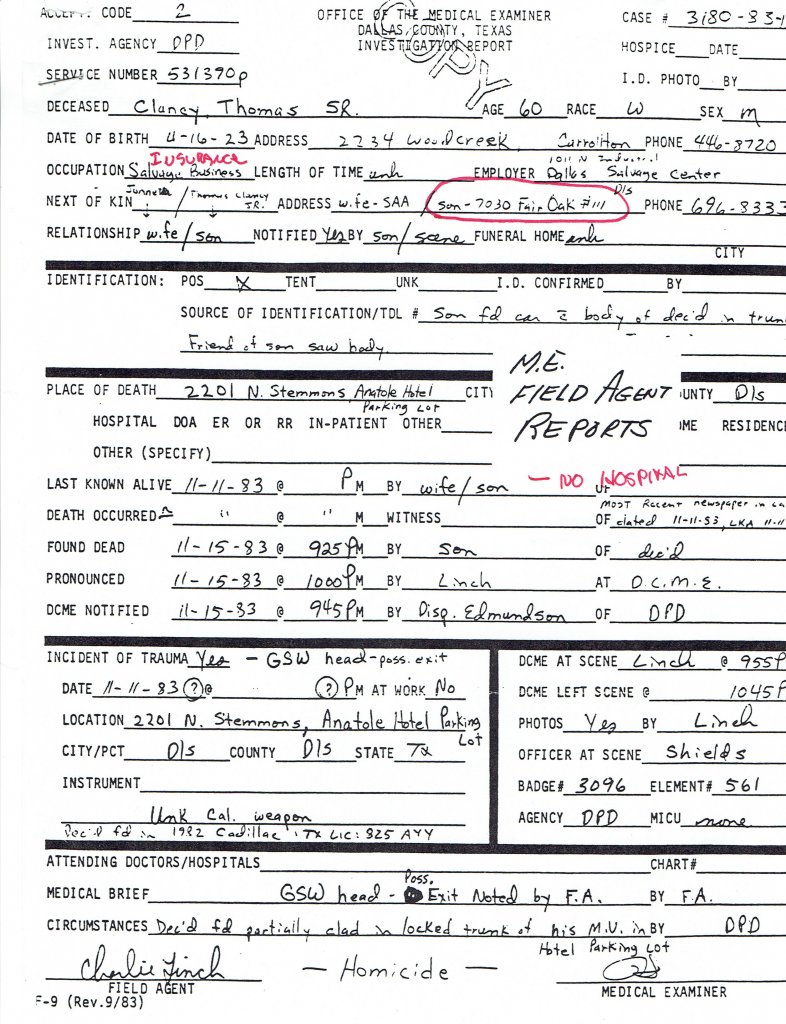 ACCEPT. CODE 2 OFFICE OF THE MEDICAL EXAMINER CASE # 3180-83-
DALLAS COUNTY, TEXAS
INVEST. AGENCY DPD INVESTIGATION REPORT HOSPICE DATE
COPY
SERVICE NUMBER 531390p I.D. PHOTO BY
DECEASED Clancy, Thomas SR. AGE 60 RACE W SEX M
DATE OF BIRTH 4-16-23 ADDRESS 2234 Woodcreek, Carrollton PHONE 446-8720
INSURANCE 1011 N Industrial
OCCUPATION Salvage Business LENGTH OF TIME unk EMPLOYER Dallas Salvage Center
Thomas Clancy JR. Dls
NEXT OF KIN / ADDRESS wife-SAA / son-7030 Fair Oak #111 PHONE 696-8333
RELATIONSHIP wife/son NOTIFIED Yes BY son/scene FUNERAL HOME unk
CITY
IDENTIFICATION: POS X TENT UNK I.D. CONFIRMED BY
SOURCE OF IDENTIFICATION/TDL # Son fd car c̄ body of dec'd in trun
Friend of son saw body
M.E.
FIELD AGENT
REPORTS
PLACE OF DEATH 2201 N. Stemmons, Anatole Hotel CITY UNTY Dls
Parking Lot
HOSPITAL DOA ER OR RR IN-PATIENT OTHER OME RESIDENCE
OTHER (SPECIFY)
- NO HOSPITAL
LAST KNOWN ALIVE 11-11-83 @ P M BY wife/son OF
Most Recent newspaper in ca
DEATH OCCURRED ~ " @ " M WITNESS OF dated 11-11-83, LKA 11-11
FOUND DEAD 11-15-83 @ 925PM BY son OF dec'd
PRONOUNCED 11-15-83 @ 1000PM BY Linch AT O.C.M.E.
DCME NOTIFIED 11-15-83 @ 945PM BY Disp. Edmundson OF DPD
INCIDENT OF TRAUMA Yes - GSW head-poss. exit
DATE 11-11-83 ? @ ? PM AT WORK No
LOCATION 2201 N. Stemmons, Anatole Hotel Parking Lot
CITY/PCT Dls COUNTY Dls STATE Tx
INSTRUMENT
Unk Cal. weapon
Dec'd fd in 1982 Cadillac, TX LIC: 825 AYY
DCME AT SCENE Linch @ 955P
DCME LEFT SCENE @ 1045P
PHOTOS Yes BY Linch
OFFICER AT SCENE Shields
BADGE# 3096 ELEMENT# 561
AGENCY DPD MICU none
ATTENDING DOCTORS/HOSPITALS CHART#
Poss.
MEDICAL BRIEF GSW head - Exit Noted by F.A. BY F.A.
CIRCUMSTANCES Dec'd fd partially clad in locked trunk of his M.V. in BY DPD
Hotel Parking Lot
Charlie Linch - Homicide -
FIELD AGENT MEDICAL EXAMINER
F-9 (Rev.9/83)